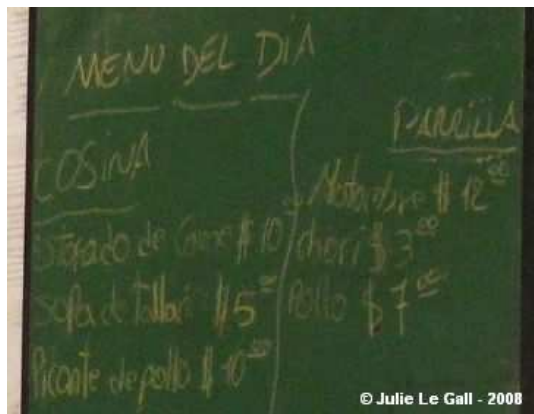 MENU DEL DÍA
COSINA
Estofado de Carne $ 10
Sopa de tallari $ 5 00
Picante de pollo $ 10 00
PARRILLA
Matambre $ 12 00
chori $ 3 00
Pollo $ 7 00
© Julie Le Gall - 2008